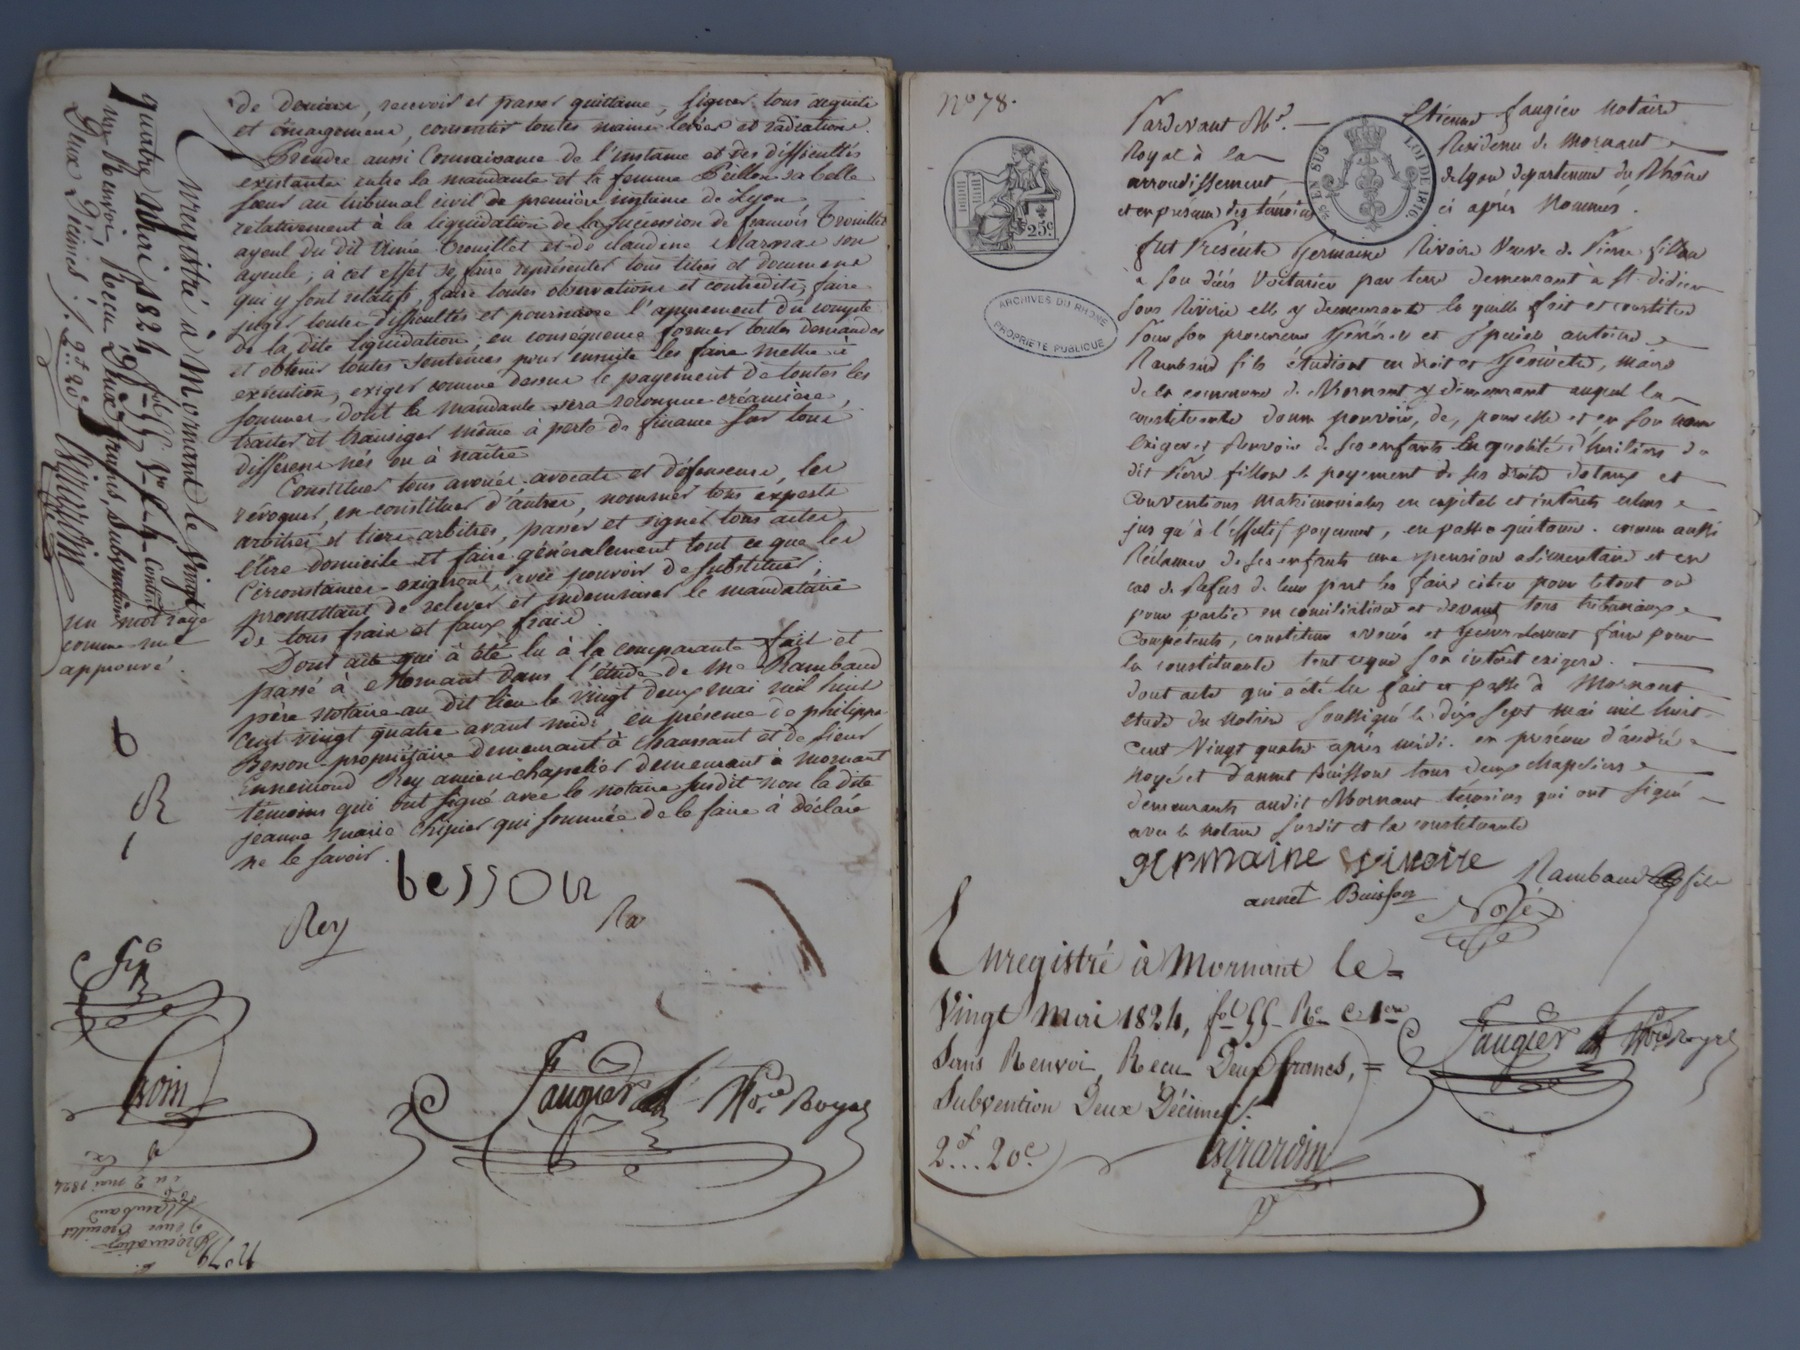 de deniers, recevoir et passer quittance, signer tous acquits
et émargemens, consentir toutes mains levées et radiations.
Prendre aussi Connaissance de l'instance et des difficultés
existantes entre la mandante et la femme Peillon sa belle
sœur au tribunal civil de première instance de Lyon,
relativement à la liquidation de la succession de francois Trouillet
ayeul du dit Trouillet et de claudine son
ayeule; à cet effet se faire représenter tous titres et documens
qui y sont relatifs, faire toutes observations et contredits, faire
juger toutes difficultés et poursuivre l'apurement du compte
de la dite liquidation, en conséquence former toutes demandes
et obtenir toutes sentences pour ensuite les faire mettre à
exécution, exiger comme dessus le payement de toutes les
sommes dont la mandante sera reconnue créancière,
traiter et transiger même à perte de finance sur tous
différens nés ou à naître
Constituer tous avoués avocats et défenseurs, les
révoquer, en constituer d'autres, nommer tous experts
arbitres et tiers-arbitres, passer et signer tous actes,
élire domicile et faire généralement tout ce que les
Circonstances exigeront, avec pouvoir de substituer,
promettant de relever et indemniser le mandataire
de tous frais et faux frais
Dont acte qui à été lu à la comparante fait et
passé à Mornant dans l'étude de Me Rambaud
père Notaire au dit lieu le vingt deux mai mil huit
cent vingt quatre avant midi en présence de philippe
Besson propriétaire demeurant à Chaussant et de sieur
Ennemond Rey ancien chapelier demeurant à mornant
témoins qui ont signé avec le notaire susdit non la dite
jeanne marie Chipier qui sommée de le faire à déclaré
ne le savoir.
besson
Rey
Ra
faugier
Nore Royal
Enregistré à Mornant le Vingt
quatre Mai 1824, fol. 55 Vo
un Renvoi Recu Deux francs, Subvention
Deux Décimes. 2f. 20c
un mot rayé
comme nul
approuvé.
b
R
girardin
No 79
Procuration
Rambaud
mai 1824
No 78.
Pardevant Me. Etienne faugier Notaire
Royal à la Résidence de Mornant
arrondissement de Lyon departement du Rhône
et en présence des temoins ci après Nommés.
EN SUS
LOI DE 1816
25c
ARCHIVES DU RHONE
PROPRIETE PUBLIQUE
fut Présente Germaine Rivoire Veuve de Pierre fillon
à son décès Voiturier par terre demeurant à St. didier
sous Riverie elle y demeurante la quelle fait et constitue
Pour son procureur Général et special antoine
Rambaud fils étudiant en droit et Géometre, maire
de la commune de Mornant y demeurant auquel la
constituante donne pouvoir, de, pour elle et en son nom
Exiger et Recevoir de ses enfants En qualité d'héritiers du
dit Pierre fillon le payement de ses droits dotaux et
Conventions matrimoniales en capital et intérets
jus qu'à l'effectif payement, en passer quittance. comme aussi
Réclamer de ses enfants une pension alimentaire et en
cas de Refus de leur part les faire citer pour le tout ou
pour partie en conciliation et devant tous tribunaux
Compétents, constituer avoués et Generalement faire pour
la constituante tout ceque son intérêt exigera.
dont acte qui a été lu fait et passé à Mornant
etude du Notaire soussigné le dix sept mai mil huit
cent Vingt quatre après midi. en presence d'andré
Noyé et d'annet Buisson tous deux chapeliers
demeurants audit Mornant témoins qui ont signé
avec le Notaire susdit et la constituante
germaine rivoire
annet Buisson
Noyé
Rambaud fils
Enregistré à Mornant le
Vingt Mai 1824, fol 55 Ro C 1ere
Sans Renvoi, Recu Deux francs,
Subvention Deux Décimes.
2f... 20c.
girardin
faugier
Nore Royal